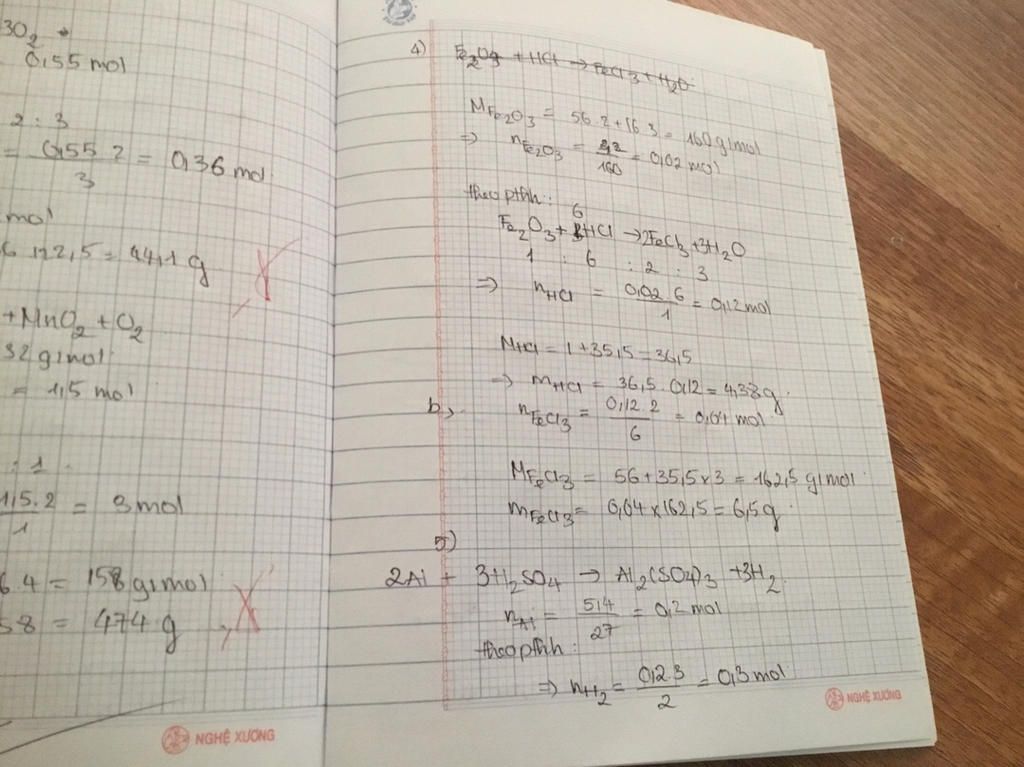 3O₂ →
0,55 mol
2 : 3
= 0,55.2 / 3 = 0,36 mol
mol
122,5 = 44,1 g
+ MnO₂ + O₂
32 g/mol
= 1,5 mol
: 1
1,5.2 / 1 = 3 mol
6.4 = 158 g/mol
58 = 474 g
NGHỆ XƯƠNG
4) Fe₂O₃ + HCl → FeCl₃ + H₂O
M Fe₂O₃ = 56.2 + 16.3 = 160 g/mol
=> n Fe₂O₃ = 3,2 / 160 = 0,02 mol
theo pthh :
Fe₂O₃ + 6HCl → 2FeCl₃ + 3H₂O
1 : 6 : 2 : 3
=> n HCl = 0,02.6 / 1 = 0,12 mol
M HCl = 1 + 35,5 = 36,5
=> m HCl = 36,5.0,12 = 4,38 g
b, n FeCl₃ = 0,12.2 / 6 = 0,04 mol
M FeCl₃ = 56 + 35,5 x 3 = 162,5 g/mol
m FeCl₃ = 0,04 x 162,5 = 6,5 g
5)
2Al + 3H₂SO₄ → Al₂(SO₄)₃ + 3H₂
n Al = 5,4 / 27 = 0,2 mol
theo pthh :
=> n H₂ = 0,2.3 / 2 = 0,3 mol
NGHỆ XƯƠNG